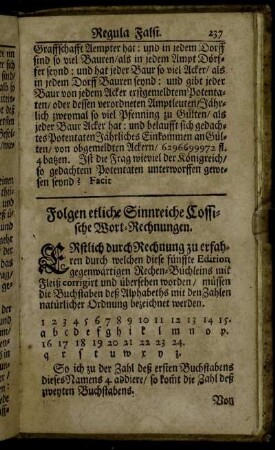 Regula Falsi. 237
Graffschafft Aempter hat: und in jedem Dorff
sind so viel Bauren/ als in jedem Ampt Dörf-
fer seynd: und hat jeder Baur so viel Acker/ als
in jedem Dorff Bauren seynd: und gibt jeder
Baur von jedem Acker erstgemeldtem Potenta-
ten/ oder dessen verordneten Amptleuten/ Jähr-
lich zweymal so viel Pfenning zu Gülten/ als
jeder Baur Acker hat: und belaufft sich gedach-
tes Potentaten Jährliches Einkommen an Gül-
ten/ von obgemeldten Ackern/ 6296699972 fl.
4 batzen. Ist die Frag wieviel der Königreich/
so gedachtem Potentaten unterworffen gewe-
sen seynd? Facit
Folgen etliche Sinnreiche Cossi-
sche Wort-Rechnungen.
ERstlich durch Rechnung zu erfah-
ren durch welchen diese fünffte Edition
gegenwärtigen Rechen-Büchleins mit
Fleiß corrigirt und übersehen worden/ müssen
die Buchstaben deß Alphabeths mit den Zahlen
natürlicher Ordnung bezeichnet werden.
1 2 3 4 5 6 7 8 9 10 11 12 13 14 15.
a b c d e f g h i k l m n o p.
16 17 18 19 20 21 22 23 24.
q r s t u w x y z.
So ich zu der Zahl deß ersten Buchstabens
dieses Namens 4 addiere/ so komt die Zahl deß
zweyten Buchstabens.
Von